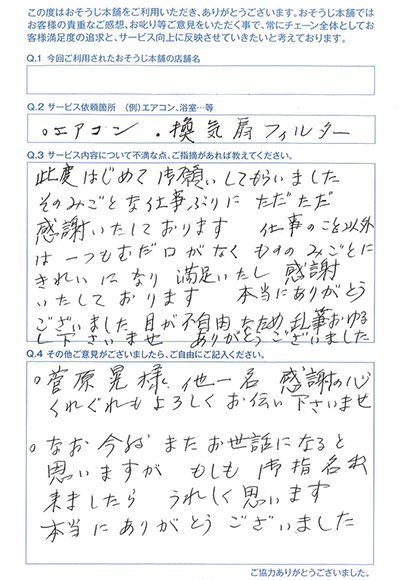 この度はおそうじ本舗をご利用いただき、ありがとうございます。おそうじ本舗では
お客様の貴重なご感想、お叱り等ご意見をいただく事で、常にチェーン全体としてお
客様満足度の追求と、サービス向上に反映させていきたいと考えております。
Q.1 今回ご利用されたおそうじ本舗の店舗名
Q.2 サービス依頼箇所 (例)エアコン、浴室…等
○エアコン ・換気扇フィルター
Q.3 サービス内容について不満な点、ご指摘があれば教えてください。
此度はじめて御願いしてもらいました
そのみごとな仕事ぶりに ただただ
感謝いたしております 仕事のこと以外
は一つもむだ口がなく ものの みごとに
きれいになり 満足いたし 感謝
いたして おります 本当にありがとう
ございました 目が不自由なため 乱筆おゆる
し下さいませ ありがとうございました
Q.4 その他ご意見がございましたら、ご自由にご記入ください。
○菅原晃様、他一名 感謝の心
くれぐれもよろしくお伝い下さいませ
○なお 今后 またお世話になると
思いますが もしも御指名出
来ましたら うれしく思います
本当にありがとうございました
ご協力ありがとうございました。